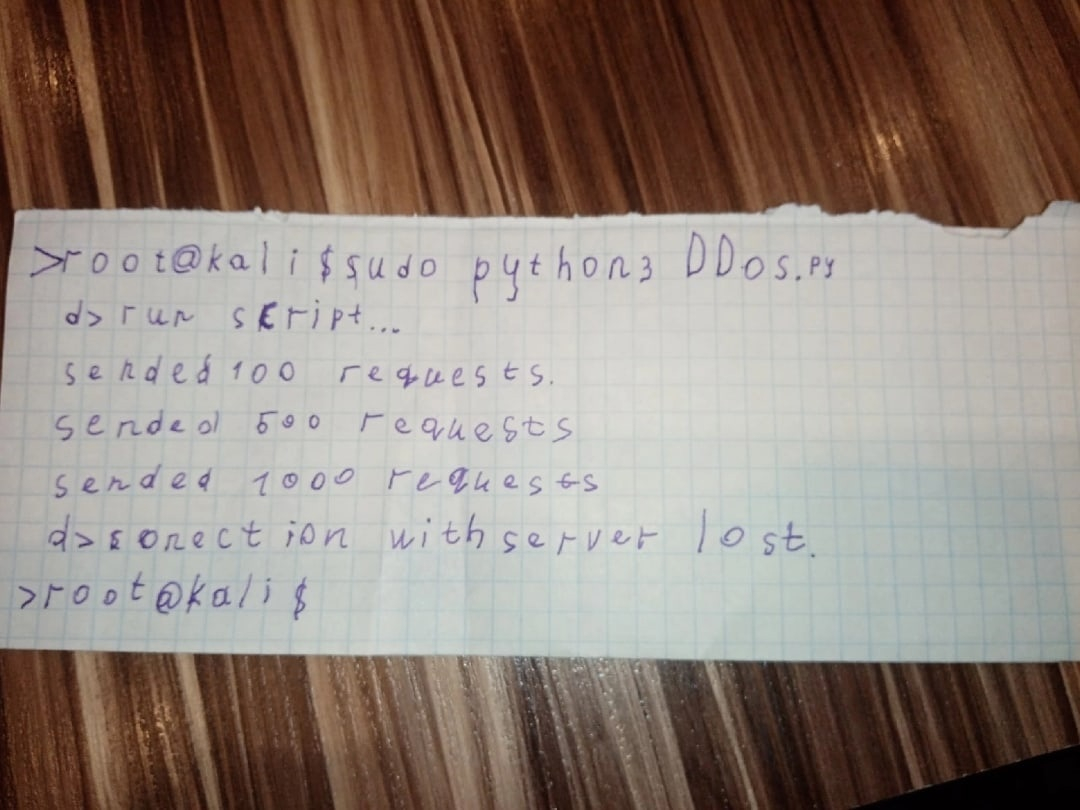 >root@kali$sudo python3 DDos.py
d> run script...
sended 100 requests.
sended 500 requests
sended 1000 requests
d>conection with server lost.
>root@kali$